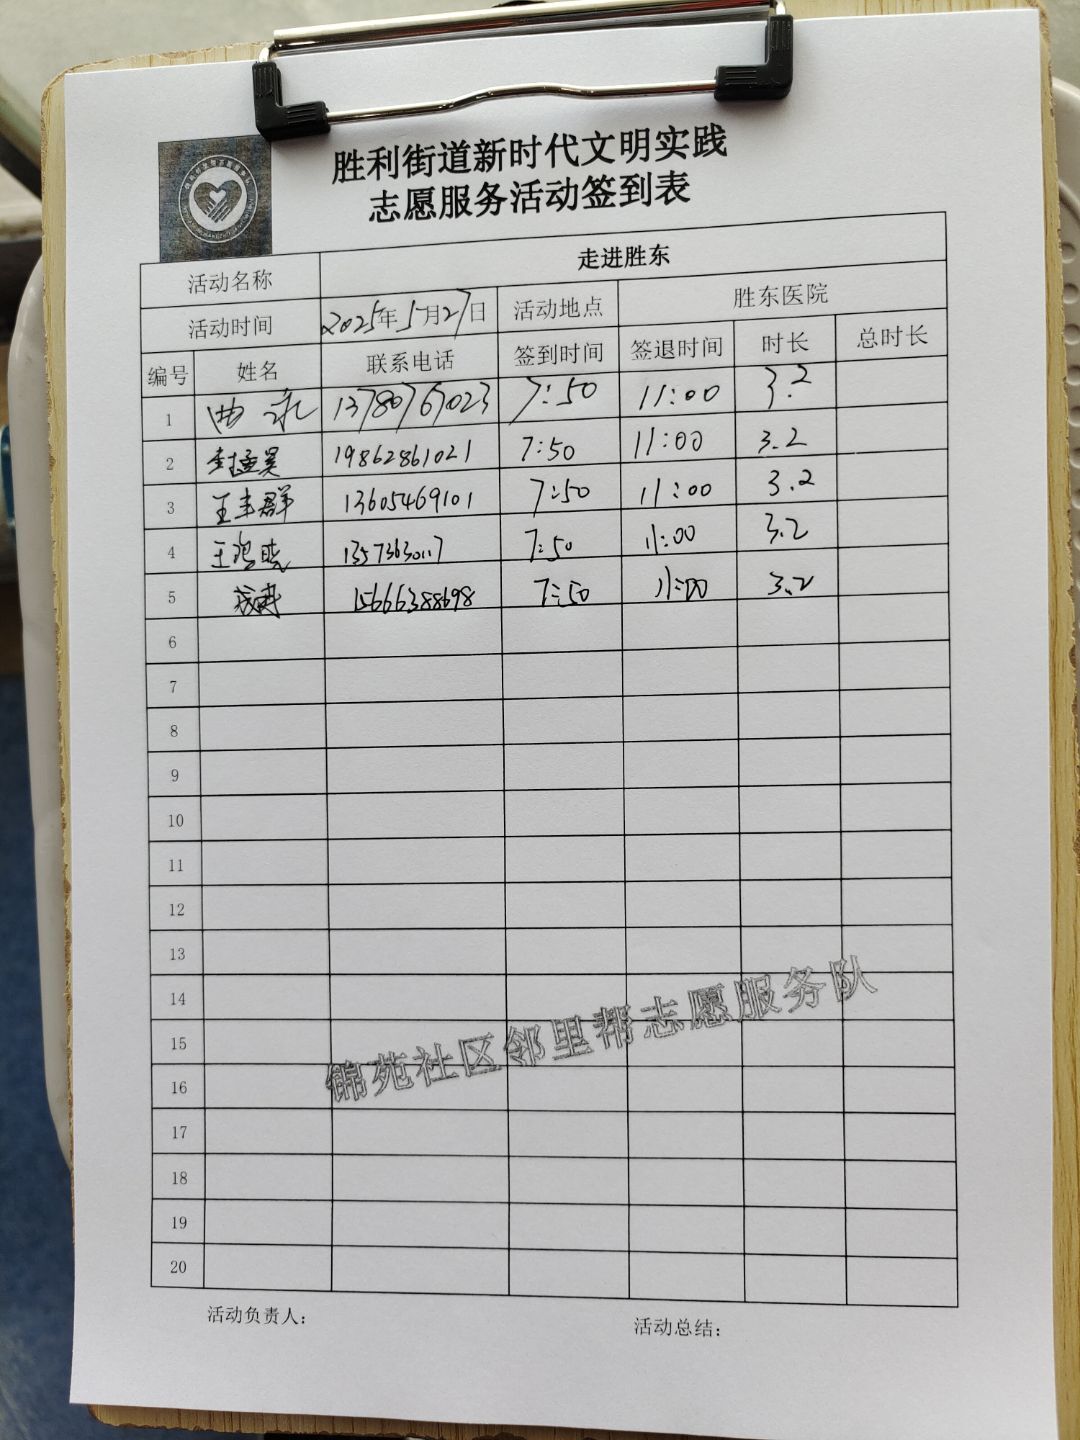 胜利街道新时代文明实践
志愿服务活动签到表
活动名称 走进胜东
活动时间 2025年5月27日 活动地点 胜东医院
编号 姓名 联系电话 签到时间 签退时间 时长 总时长
1 曲 13780767023 7:50 11:00 3.2
2 19862861021 7:50 11:00 3.2
3 王丰群 13605469101 7:50 11:00 3.2
4 王晓 7:50 11:00 3.2
5 15666388698 7:50 11:00 3.2
6
7
8
9
10
11
12
13
14
15
16
17
18
19
20
锦苑社区邻里帮志愿服务队
活动负责人: 活动总结: